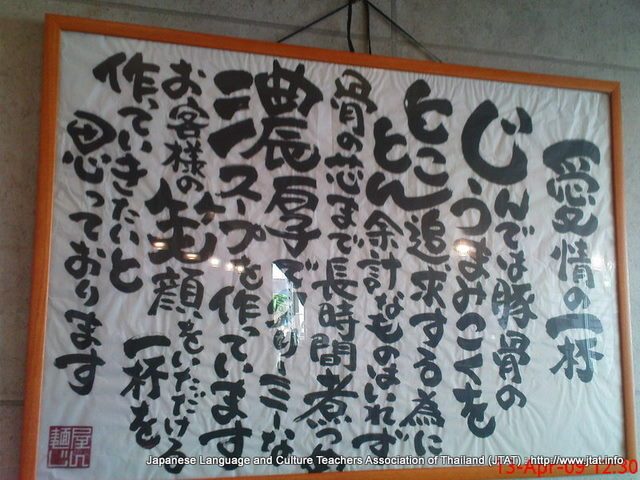 愛情の一杯
じんでは豚骨の
うまみこくを
とことん追求する為に
余計なものはいれず
骨の芯まで長時間煮つめ
濃厚でクリーミーな
スープを作っています
お客様の笑顔をいただける
一杯を
作っていきたいと
思っております
麺屋じん
Japanese Language and Culture Teachers Association of Thailand (JTAT) : http://www.jtat.info
13-Apr-09 12:30